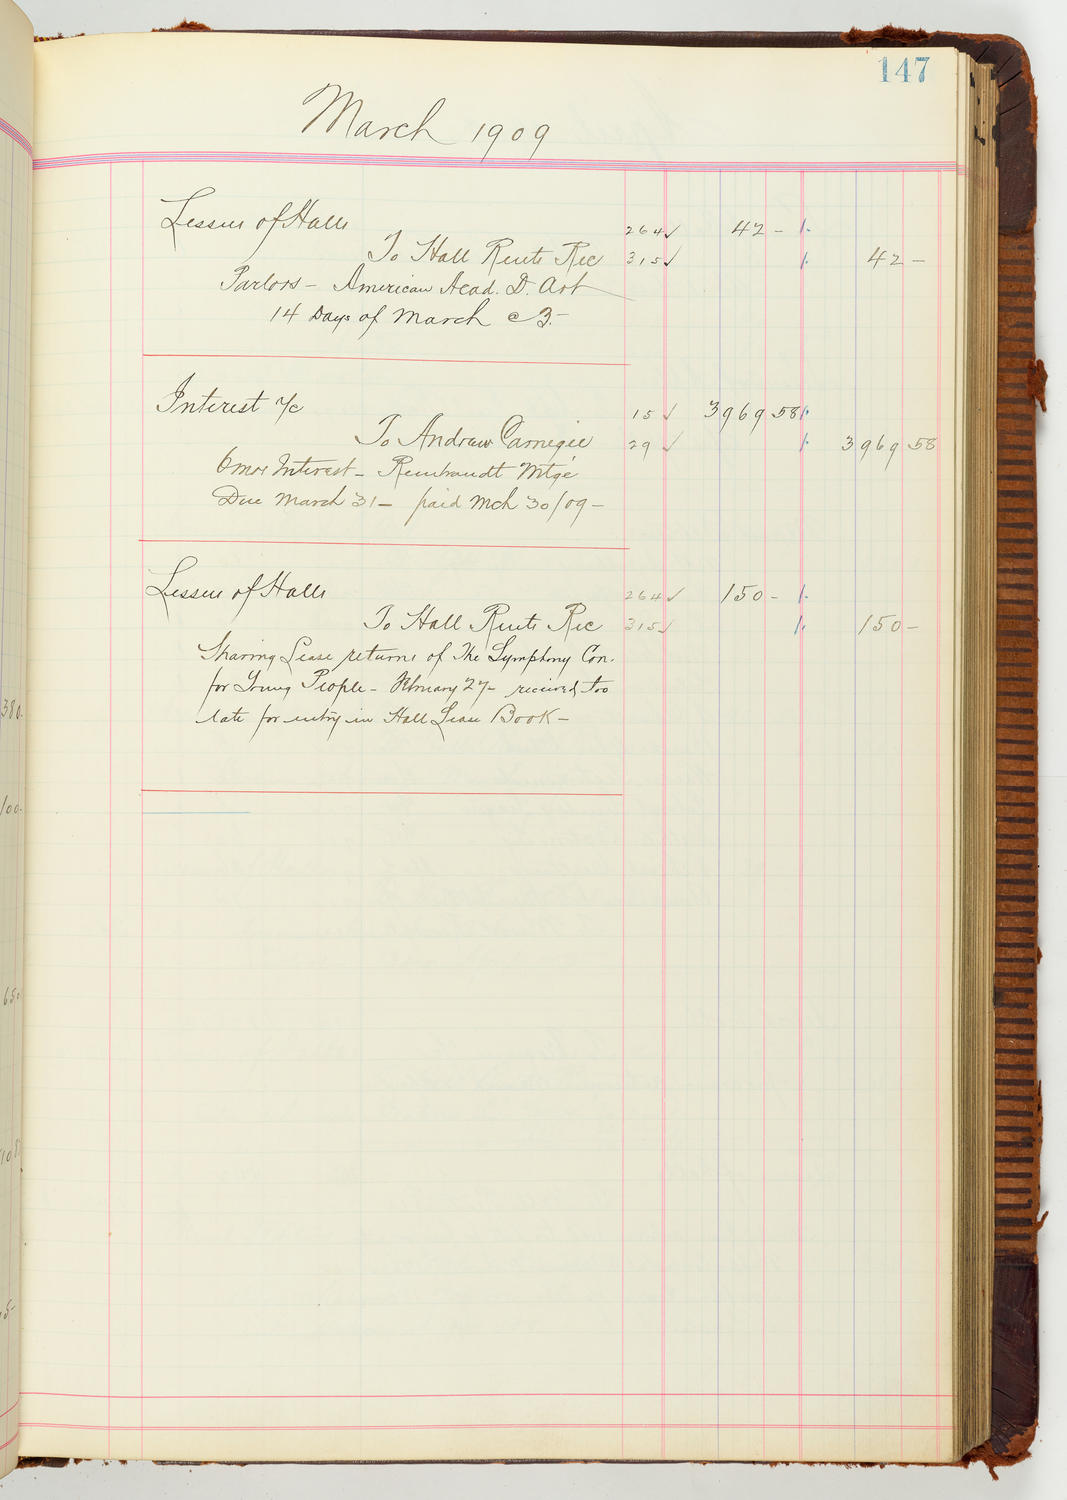 147
March 1909
Lessees of Halls 264✓ 42 -
To Hall Rents Rec 315✓ 42 -
Parlors - American Acad. D. Art
14 Days of March @ 3.-
Interest a/c 15 ✓ 3969.58
To Andrew Carnegie 29 ✓ 3969.58
6 mos Interest - Rembrandt Mtge
Due March 31 - paid Mch 30/09 -
Lessees of Halls 264✓ 150 -
To Hall Rents Rec 315✓ 150 -
Sharing Lease returns of The Symphony Con.
for Young People - February 27 - received too
late for entry in Hall Lease Book -
380.
100.
650
5-